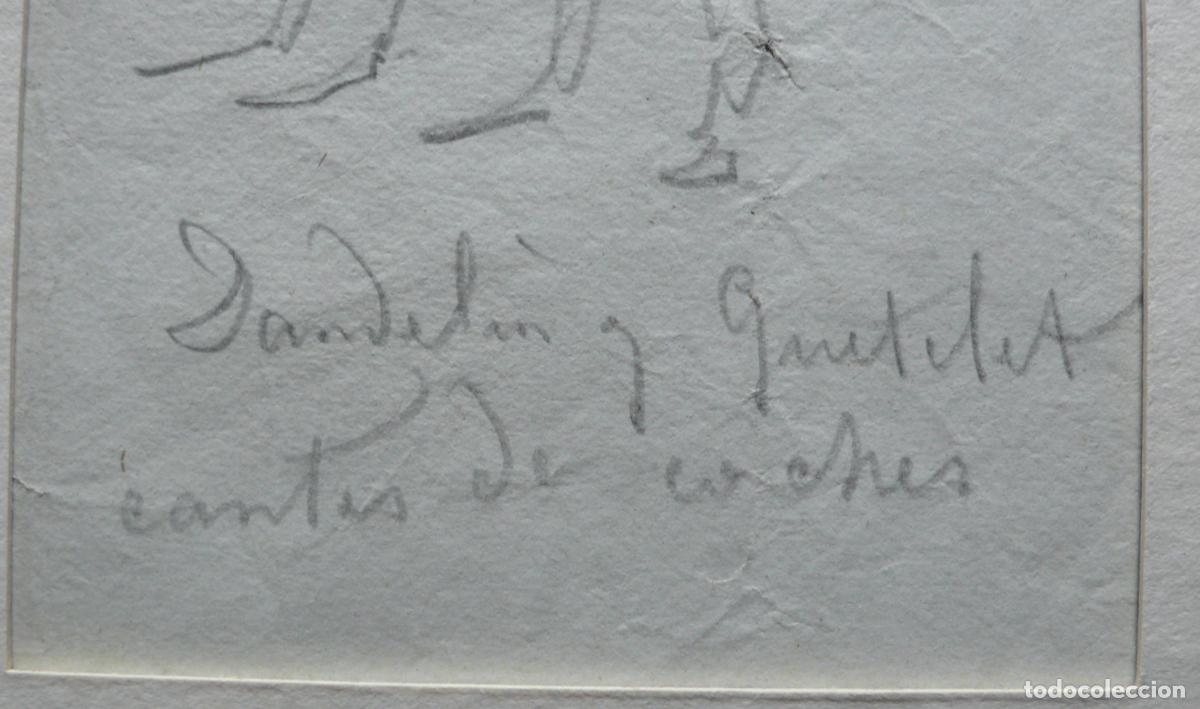 Dandelin y Quetelet
cantes de coches
todocoleccion